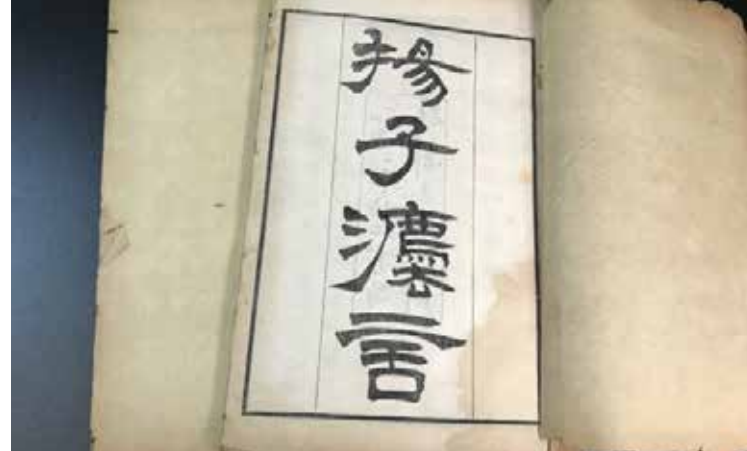 揚子灋言